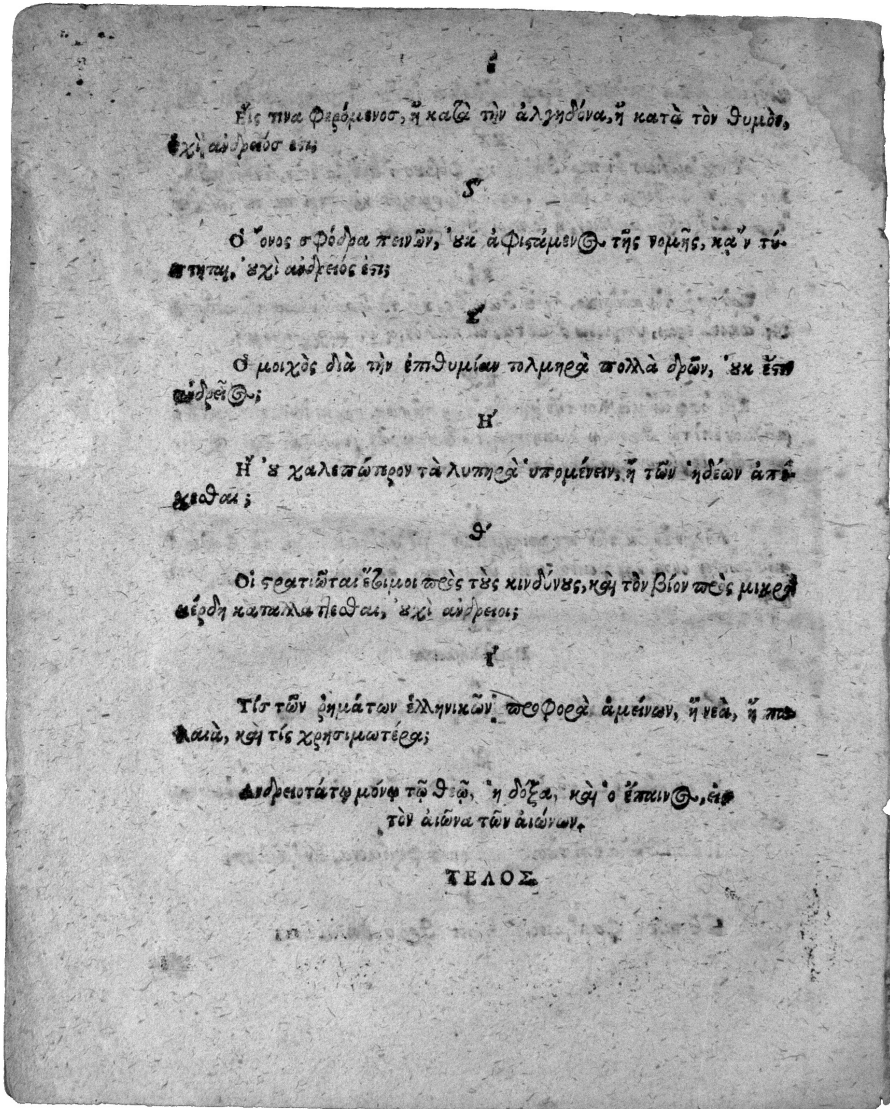 ε
Εἴς τινα φερόμενοσ, ἢ κατὰ τὴν ἀλγηδόνα, ἢ κατὰ τὸν θυμὸν,
ὀχὶ ἀνδρειόσ ἐστι;
ς
Ὁ ὄνος σφόδρα πεινῶν, ὀυκ ἀφιστάμενος τῆς νομῆς, κἀ'ν τύ-
πτηται, ὀυχὶ ἀνδρεῖός ἐστι;
ζ
Ὁ μοιχὸς διὰ τὴν ἐπιθυμίαν τολμηρὰ πολλὰ δρῶν, ὀυκ ἔστιν
ἀνδρεῖος;
Η
Ἢ ὀυ χαλεπώτερον τὰ λυπηρὰ ὑπομένειν, ἢ τῶν ἡδέων ἀπέ-
χεσθαι;
θ
Οἱ στρατιῶται ἕτοιμοι πρὸς τοὺς κινδύνους, καὶ τὸν βίον πρὸς μικρὰ
κέρδη καταλλάττεσθαι, ὀυχὶ ἀνδρειοι;
ι
Τίς τῶν ῥημάτων ἑλληνικῶν προφορὰ ἀμείνων, ἢ νεὰ, ἢ πα-
λαιὰ, καὶ τίς χρησιμωτέρα;
Ανδρειοτάτῳ μόνῳ τῷ θεῷ, ἡ δόξα, καὶ ὁ ἔπαινος, εἰς
τὸν ἀιῶνα τῶν ἀιώνων.
ΤΕΛΟΣ